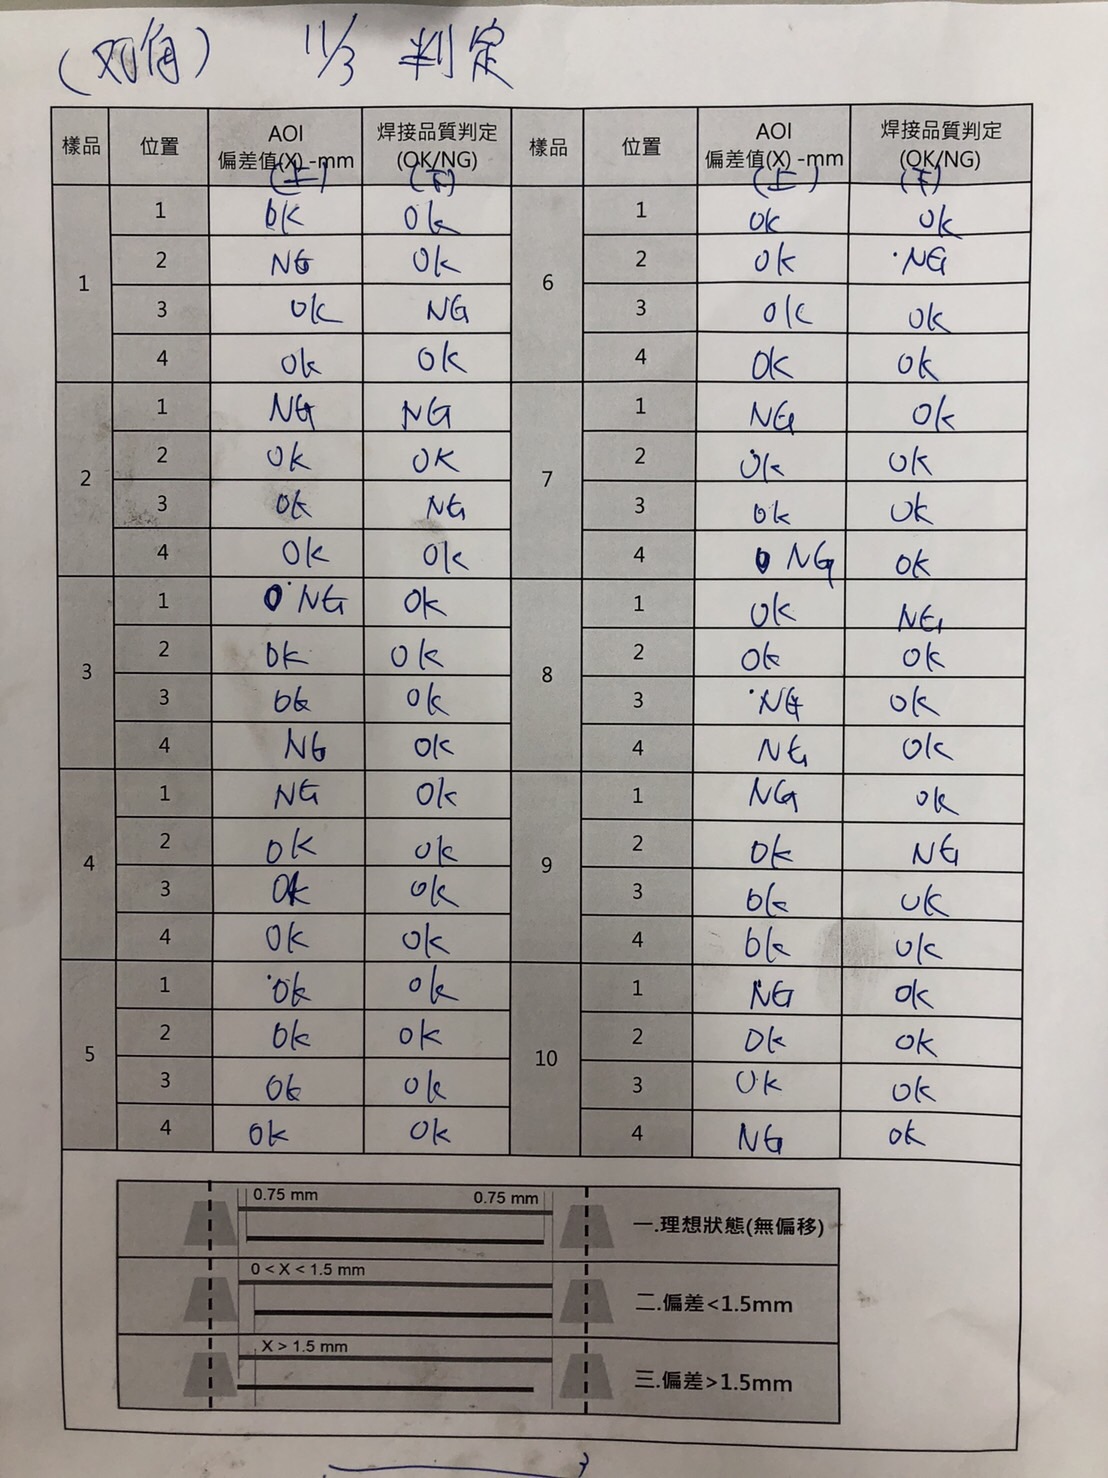 (对角) 11/3 判定
樣品 位置 AOI 偏差值(X) -mm (上) 焊接品質判定 (OK/NG) (下) 樣品 位置 AOI 偏差值(X) -mm (上) 焊接品質判定 (OK/NG) (下)
1 1 OK OK 6 1 OK OK
2 NG OK 2 OK NG
3 OK NG 3 OK OK
4 OK OK 4 OK OK
2 1 NG NG 7 1 NG OK
2 OK OK 2 OK OK
3 OK NG 3 OK OK
4 OK OK 4 NG OK
3 1 NG OK 8 1 OK NG
2 OK OK 2 OK OK
3 OK OK 3 NG OK
4 NG OK 4 NG OK
4 1 NG OK 9 1 NG OK
2 OK OK 2 OK NG
3 OK OK 3 OK OK
4 OK OK 4 OK OK
5 1 OK OK 10 1 NG OK
2 OK OK 2 OK OK
3 OK OK 3 OK OK
4 OK OK 4 NG OK
0.75 mm 0.75 mm 一.理想狀態(無偏移)
0 < X < 1.5 mm 二.偏差<1.5mm
X > 1.5 mm 三.偏差>1.5mm